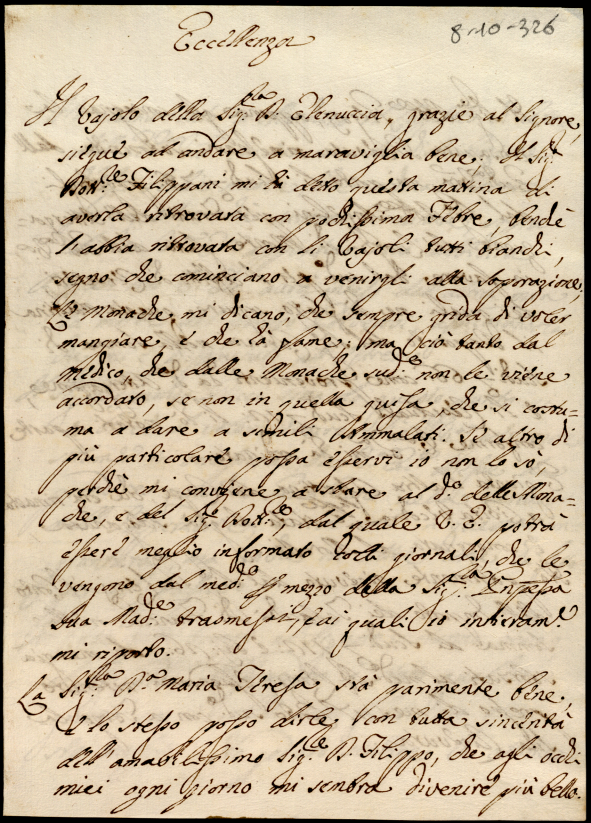 8-10-326
Eccellenza
Il Vajolo della Sig.ra D. Elenuccia, grazie al Signore,
siegue ad andare a maraviglia bene. Il Sig.r
Dott.re Filippani mi hà detto questa matina di
averla ritrovata con pochissima Febre, benche
l'abbia ritrovata con li Vajoli tutti bianchi,
segno che cominciano a venirgli alla soporazione,
Le Monache mi dicano, che sempre grida di voler
mangiare, e che hà fame; ma ciò tanto dal
medico, che dalle Monache sud.e non le viene
accordato, se non in quella guisa, che si costu=
ma a dare a simili Ammalati. Se altro di
più particolare possa esservi io non lo sò,
perche mi conviene a stare al d.o delle Mona=
che, e del Sig.r Dott.re, dal quale V. E. potrà
essere meglio informato colli giornali, che le
vengono dal med.o p mezzo della Sig.ra
sua Mad.e trasmessi, ai quali io interam.e
mi riporto.
La Sig.ra D.a Maria Teresa stà parimente bene,
e lo stesso posso dirle con tutta sincerità
dell'amabilissimo Sig.re D. Filippo, che agli occhi
miei ogni giorno mi sembra divenire più bello.